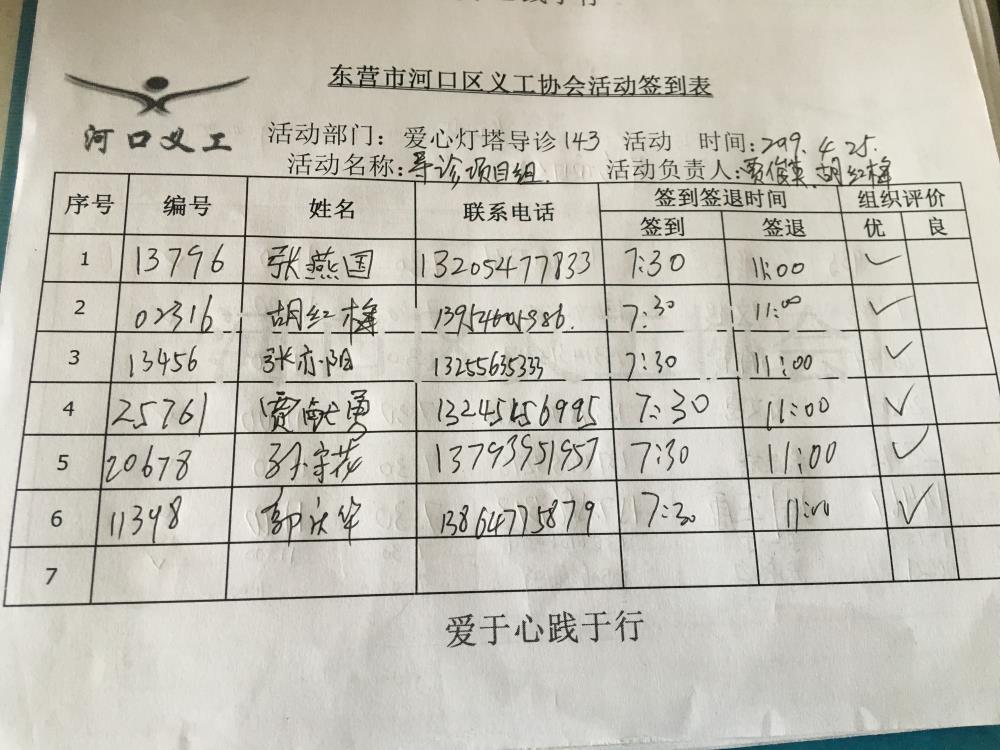 心践于行
东营市河口区义工协会活动签到表
河口义工
活动部门：爱心灯塔导诊143 活动 时间：2019.4.25.
活动名称：导诊项目组 活动负责人：贾俊英 胡红梅
序号 编号 姓名 联系电话 签到签退时间 组织评价
签到 签退 优 良
1 13796 张燕国 13205477833 7:30 11:00 ✓
2 02316 胡红梅 7:30 11:00 ✓
3 13456 张亦阳 13255635333 7:30 11:00 ✓
4 25761 贾献勇 7:30 11:00 ✓
5 20678 孙守花 13793951957 7:30 11:00 ✓
6 11348 郭庆华 13864775879 7:30 11:00 ✓
7
爱于心践于行